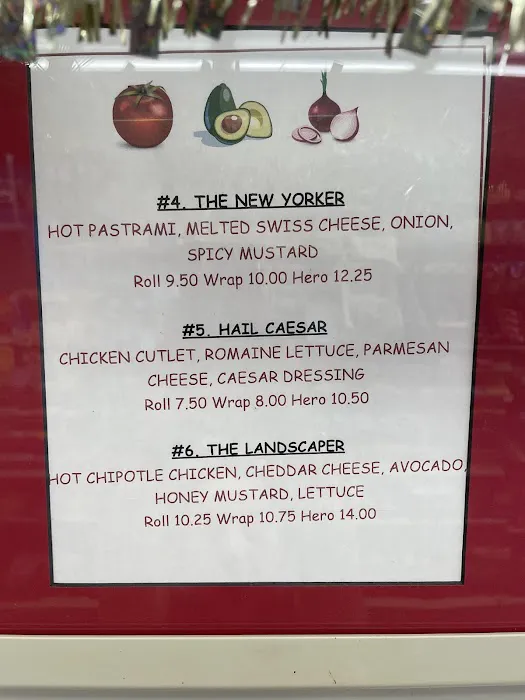 #4. THE NEW YORKER
HOT PASTRAMI, MELTED SWISS CHEESE, ONION,
SPICY MUSTARD
Roll 9.50 Wrap 10.00 Hero 12.25
#5. HAIL CAESAR
CHICKEN CUTLET, ROMAINE LETTUCE, PARMESAN
CHEESE, CAESAR DRESSING
Roll 7.50 Wrap 8.00 Hero 10.50
#6. THE LANDSCAPER
HOT CHIPOTLE CHICKEN, CHEDDAR CHEESE, AVOCADO,
HONEY MUSTARD, LETTUCE
Roll 10.25 Wrap 10.75 Hero 14.00